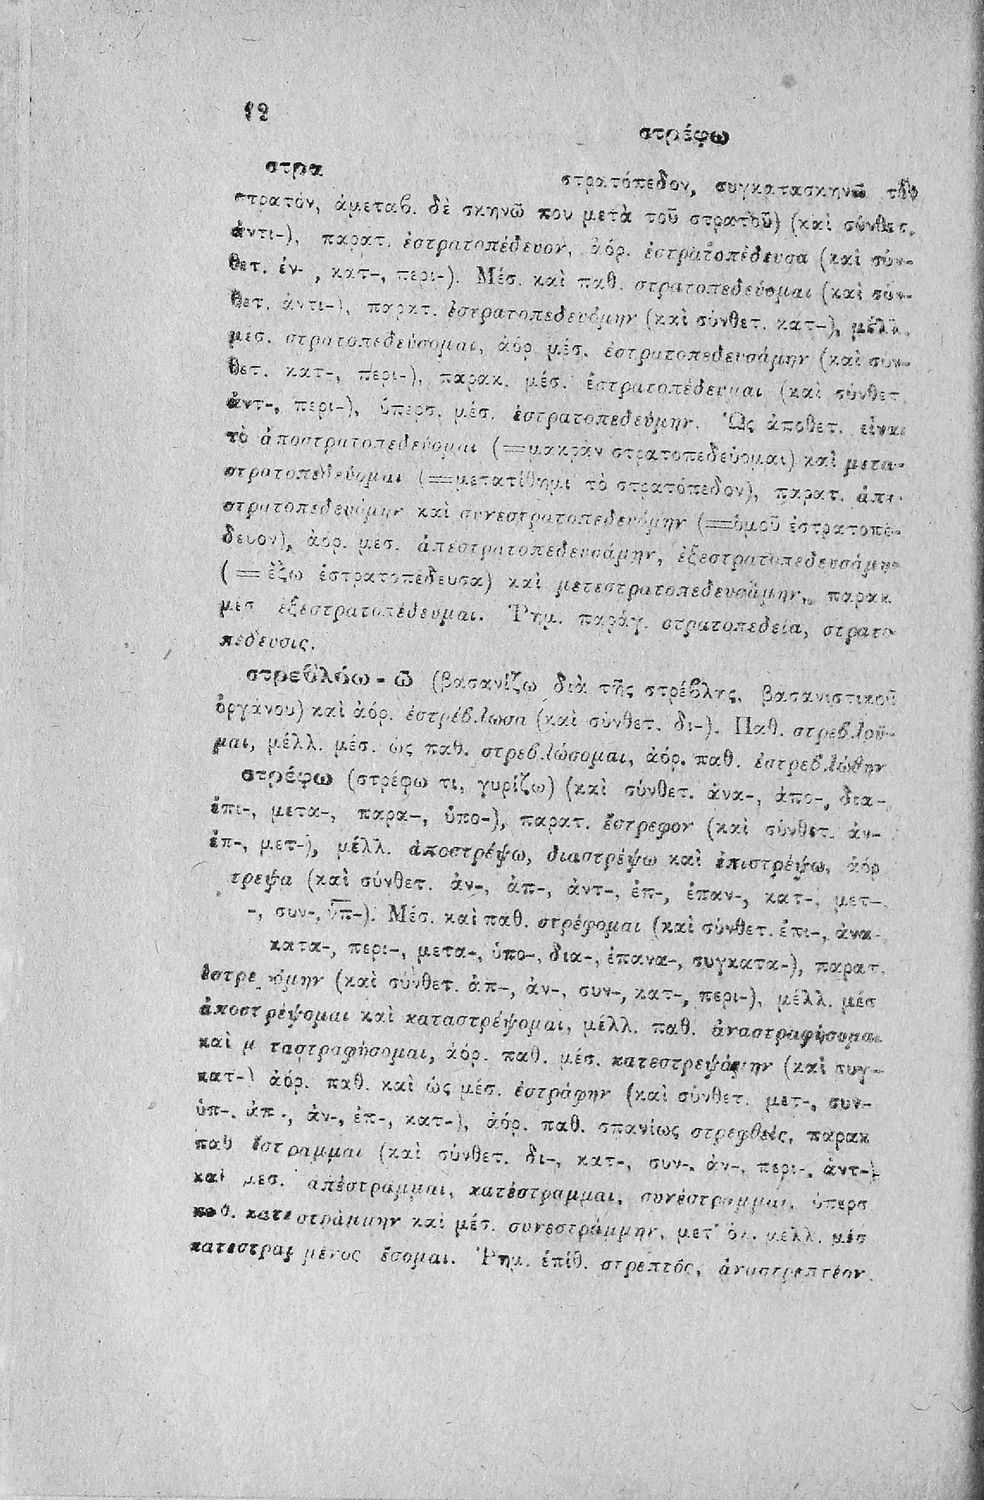 12
στρέφω
στρα
στρατόπεδον, συγκατασκηνῶ τὸν
στρατόν, ἀμεταβ. δὲ σκηνῶ που μετὰ τοῦ στρατοῦ) (καὶ σύνθετ.
ἀντι-), παρατ. ἐστρατοπέδευον, ἀόρ. ἐστρατοπέδευσα (καὶ σύν-
θετ. ἐν- , κατ-, περι-). Μέσ. καὶ παθ. στρατοπεδεύομαι (καὶ σύν-
θετ. ἀντι-), παρατ. ἐστρατοπεδευόμην (καὶ σύνθετ. κατ-), μέλλ.
μέσ. στρατοπεδεύσομαι, ἀόρ. μέσ. ἐστρατοπεδευσάμην (καὶ συν-
θετ. κατ-, περι-), παρακ. μέσ. ἐστρατοπέδευμαι (καὶ σύνθετ.
ἀντ-, περι-), ὑπερσ. μέσ. ἐστρατοπεδεύμην. Ὡς ἀποθετ. εἶναι
τὸ ἀποστρατοπεδεύομαι (=μακρὰν στρατοπεδεύομαι) καὶ μετα-
στρατοπεδεύομαι (=μετατίθημι τὸ στρατόπεδον), παρατ. ἀπε-
στρατοπεδευόμην καὶ συνεστρατοπεδευόμην (=ὁμοῦ ἐστρατοπέ-
δευον), ἀόρ. μέσ. ἀπεστρατοπεδευσάμην, ἐξεστρατοπεδευσάμην
(=ἔξω ἐστρατοπέδευσα) καὶ μετεστρατοπεδευσάμην, παρακ.
μέσ ἐξεστρατοπέδευμαι. Ῥημ. παράγ. στρατοπεδεία, στρατο-
πέδευσις.
στρεβλόω-ῶ (βασανίζω διὰ τῆς στρέβλης, βασανιστικοῦ
ὀργάνου) καὶ ἀόρ. ἐστρέβλωσα (καὶ σύνθετ. δι-). Παθ. στρεβλοῦ-
μαι, μέλλ. μέσ. ὡς παθ. στρεβλώσομαι, ἀόρ. παθ. ἐστρεβλώθην
στρέφω (στρέφω τι, γυρίζω) (καὶ σύνθετ. ἀνα-, ἀπο-, δια-,
ἐπι-, μετα-, παρα-, ὑπο-), παρατ. ἔστρεφον (καὶ σύνθετ. ἀν-
ἐπ-, μετ-), μέλλ. ἀποστρέψω, διαστρέψω καὶ ἐπιστρέψω, ἀόρ
τρεψα (καὶ σύνθετ. ἀν-, ἀπ-, ἀντ-, ἐπ-, ἐπαν-, κατ-, μετ-,
-, συν-, ὑπ-). Μέσ. καὶ παθ. στρέφομαι (καὶ σύνθετ. ἐπι-, ἀνα-
κατα-, περι-, μετα-, ὑπο-, δια-, ἐπανα-, συγκατα-), παρατ.
ἐστρε όμην (καὶ σύνθετ. ἀπ-, ἀν-, συν-, κατ-, περι-), μέλλ. μέσ
ἀποστρέψομαι καὶ καταστρέψομαι, μέλλ. παθ. ἀναστραφήσομαι
καὶ μ ταστραφήσομαι, ἀόρ. παθ. μέσ. κατεστρεψάμην (καὶ συγ-
κατ-) ἀόρ. παθ. καὶ ὡς μέσ. ἐστράφην (καὶ σύνθετ. μετ-, συν-
ὑπ-, ἀπ-, ἀν-, ἐπ-, κατ-), ἀόρ. παθ. σπανίως στρεφθείς, παρακ
παθ ἔστραμμαι (καὶ σύνθετ. δι-, κατ-, συν-, ἀν-, περι-, ἀντ-)
καὶ μεσ. ἀπέστραμμαι, κατέστραμμαι, συνέστραμμαι, ὑπερσ
παθ. κατεστράμμην καὶ μέσ. συνεστράμμην, μετ' ὀλ. μέλλ. μέσ
κατεστραμμένος ἔσομαι. Ῥημ. ἐπίθ. στρεπτός, ἀναστρεπτέον.